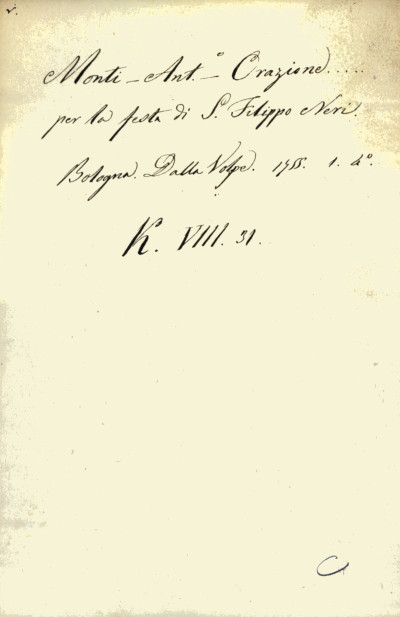 Monti - Ant.º - Orazione.....
per la festa di S. Filippo Neri.
Bologna. Dalla Volpe. 1. 4º.
K. VIII. 31.
C